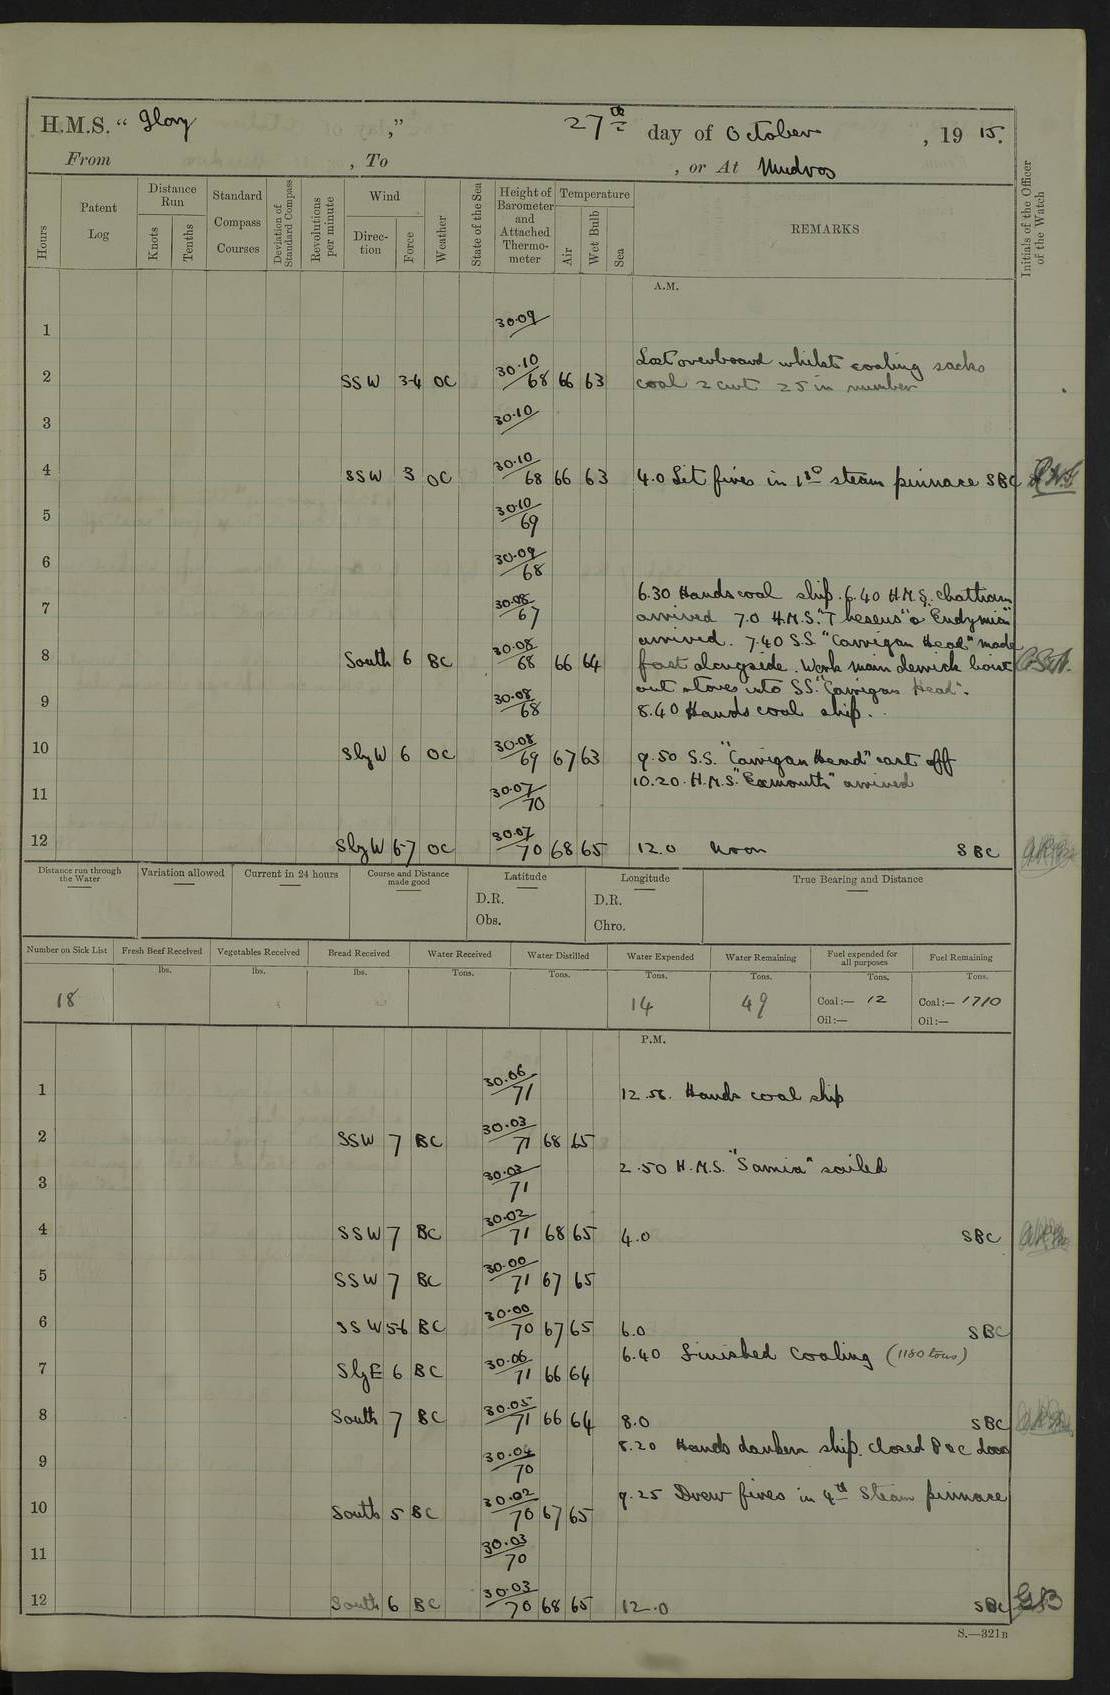 H.M.S. " Glory ," 27th day of October , 19 15.
From , To , or At Mudros
Hours
Patent Log
Distance Run
Knots
Tenths
Standard Compass Courses
Deviation of Standard Compass
Revolutions per minute
Wind
Direc-tion
Force
Weather
State of the Sea
Height of Barometer and Attached Thermo-meter
Temperature
Air
Wet Bulb
Sea
REMARKS
Initials of the Officer of the Watch
A.M.
1 30.09
Lost overboard whilst coaling sacks
2 SSW 3-4 OC 30.10/68 66 63 coal 2 cwt 25 in number
3 30.10
4 SSW 3 OC 30.10/68 66 63 4.0 Lit fires in 1st steam pinnace SBC
5 30.10/69
6 30.09/68
6.30 Hands coal ship. 6.40 H.M.S. Chatham
7 30.08/67 arrived 7.0 H.M.S. "Theseus" & "Endymion"
arrived. 7.40 S.S. "Carrigan Head" made
8 South 6 BC 30.08/68 66 64 fast alongside. Work main derrick hoist
out stores into SS. "Carrigan Head".
9 30.08/68 8.40 Hands coal ship.
10 SbyW 6 OC 30.08/69 67 63 9.50 S.S. "Carrigan Head" cast off
10.20. H.M.S. "Exmouth" arrived
11 30.07/70
12 SbyW 6-7 OC 30.07/70 68 65 12.0 Noon SBC
Distance run through the Water
Variation allowed
Current in 24 hours
Course and Distance made good
Latitude
D.R.
Obs.
Longitude
D.R.
Chro.
True Bearing and Distance
Number on Sick List Fresh Beef Received Vegetables Received Bread Received Water Received Water Distilled Water Expended Water Remaining Fuel expended for all purposes Fuel Remaining
lbs. lbs. lbs. Tons. Tons. Tons. Tons. Tons. Tons.
18 14 49 Coal:— 12 Coal:— 1710
Oil:— Oil:—
P.M.
1 30.06/71 12.50. Hands coal ship
2 SSW 7 BC 30.03/71 68 65
2.50 H.M.S. "Sarnia" sailed
3 30.03/71
4 SSW 7 BC 30.02/71 68 65 4.0 SBC
5 SSW 7 BC 30.00/71 67 65
6 SSW 5-6 BC 30.00/70 67 65 6.0 SBC
6.40 Finished Coaling (1180 tons)
7 SbyE 6 BC 30.06/71 66 64
8 South 7 BC 30.05/71 66 64 8.0 SBC
8.20 Hands darken ship. closed P & C doors
9 30.04/70
9.25 Drew fires in 4th Steam pinnace
10 South 5 BC 30.02/70 67 65
11 30.03/70
12 South 6 BC 30.03/70 68 65 12.0 SBC
S.—321B